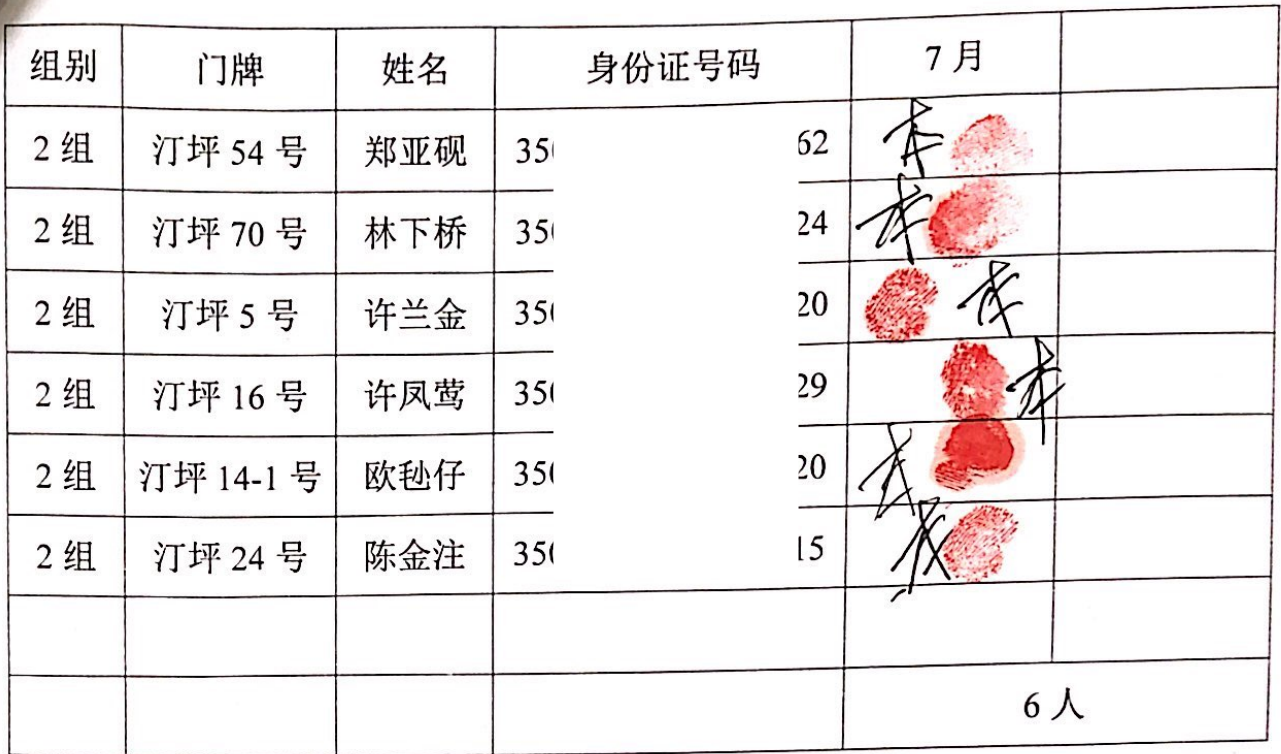 组别 门牌 姓名 身份证号码 7月
2组 汀坪 54 号 郑亚砚 350 62
2组 汀坪 70 号 林下桥 350 24
2组 汀坪 5 号 许兰金 350 20
2组 汀坪 16 号 许凤莺 350 29
2组 汀坪 14-1 号 欧毡仔 350 20
2组 汀坪 24 号 陈金注 350 15
6人